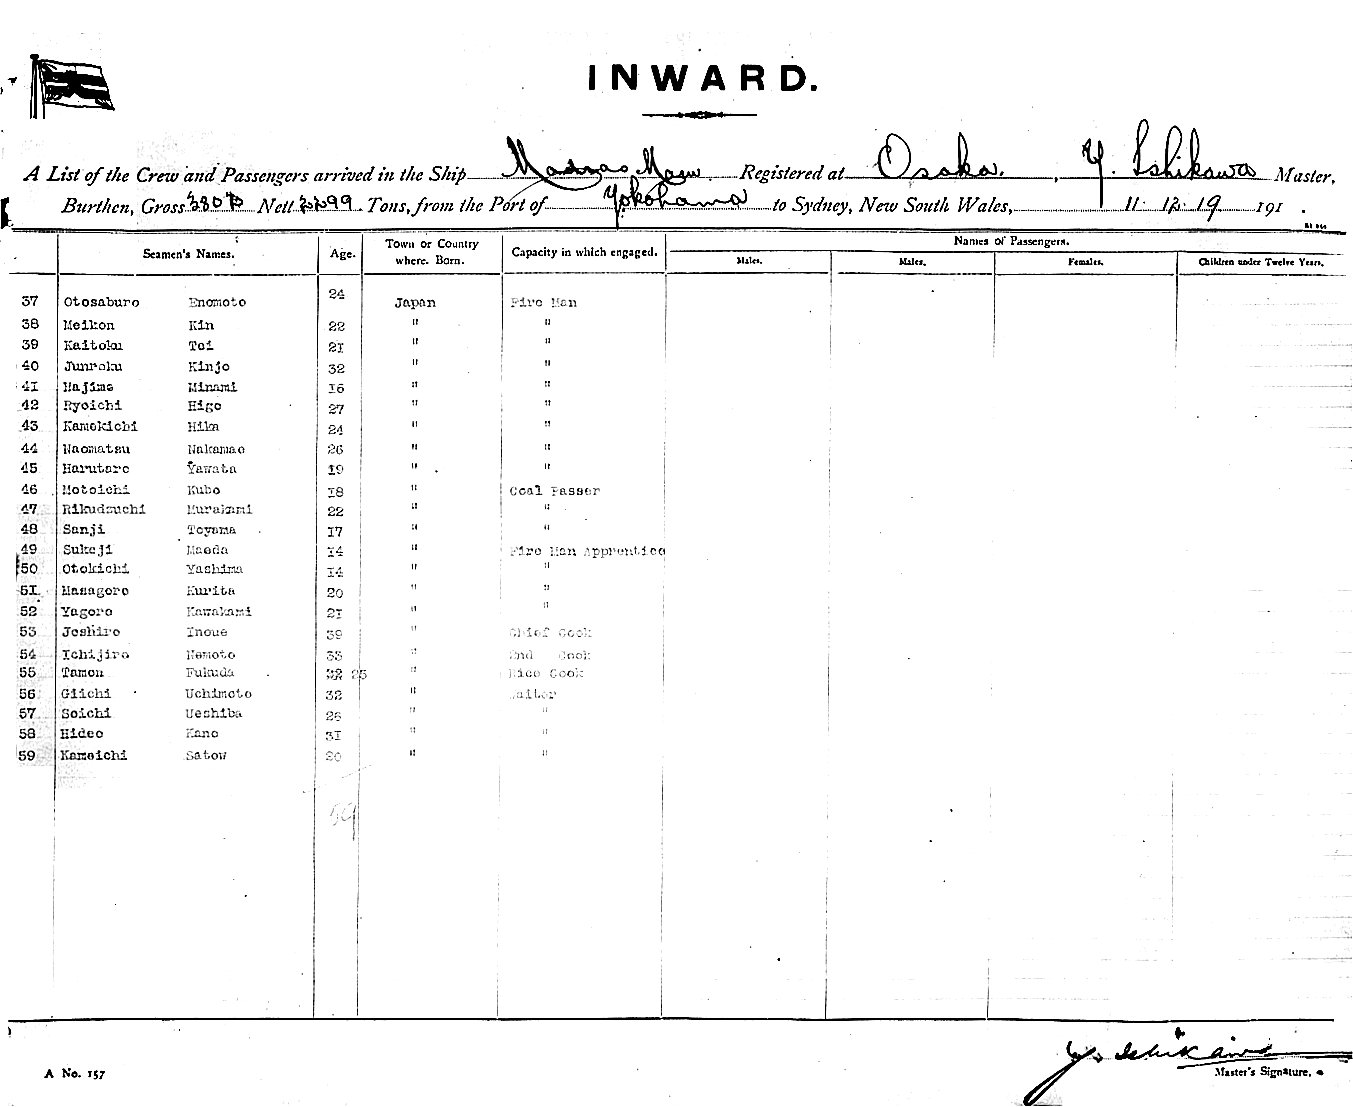 INWARD.
A List of the Crew and Passengers arrived in the Ship Madras Maru Registered at Osaka. , Y. Ishikawa Master,
Burthen, Gross 3807 Nett 2299 Tons, from the Port of Yokohama to Sydney, New South Wales, 11. 12. 19 191 .
Seamen's Names. Age. Town or Country where. Born. Capacity in which engaged. Names of Passengers.
Males. Males. Females. Children under Twelve Years.
37 Otosaburo Enomoto 24 Japan Fire Man
38 Meikon Kin 22 " "
39 Kaitoku Toi 21 " "
40 Junroku Kinjo 32 " "
41 Hajime Minami 16 " "
42 Ryoichi Higo 27 " "
43 Kamekichi Hika 24 " "
44 Naomatsu Nakamae 26 " "
45 Harutaro Yawata 19 " "
46 Motoichi Kubo 18 " Coal Passer
47 Rikudzuchi Murakami 22 " "
48 Sanji Toyama 17 " "
49 Sukeji Maeda 14 " Fire Man Apprentice
50 Otokichi Yashima 14 " "
51 Masagoro Kurita 20 " "
52 Yagoro Kawakami 21 " "
53 Joshiro Inoue 39 " Chief Cook
54 Ichijiro Nemoto 33 " 2nd Cook
55 Tamon Fukuda 25 " Rice Cook
56 Giichi Uchimoto 32 " Waiter
57 Soichi Ueshiba 26 " "
58 Hideo Kano 31 " "
59 Kameichi Satow 20 " "
59
Y. Ishikawa
A No. 157 Master's Signature.